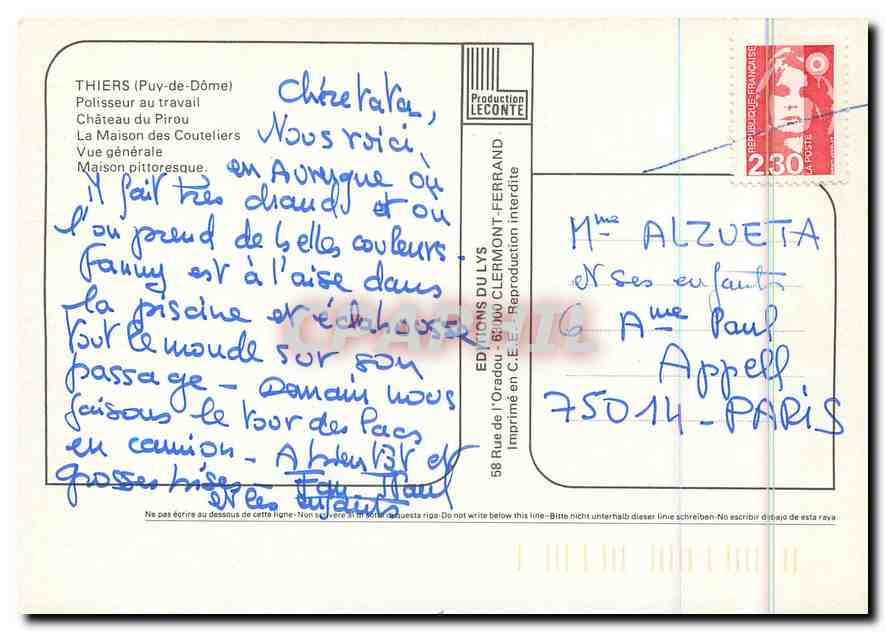 THIERS (Puy-de-Dôme)
Polisseur au travail
Château du Pirou
La Maison des Couteliers
Vue générale
Maison pittoresque.
Nous voici
en Auvergne où
il fait très chaud et où
l'on prend de belles couleurs.
Fanny est à l'aise dans
la piscine et éclabousse
tout le monde sur son
passage - Demain nous
faisons le tour des lacs
en camion - A bientôt et
grosses bises - Paul
et les enfants
Production
LECONTE
EDITIONS DU LYS
58 Rue de l'Oradou - 63000 CLERMONT-FERRAND
Imprimé en C.E.E. - Reproduction interdite
REPUBLIQUE FRANÇAISE
LA POSTE
2,30
Mme ALZUETA
et ses enfants
6 Ame Paul
Appell
75014 - PARIS
CPAPHIL
Ne pas écrire au dessous de cette ligne - Non scrivere al di sotto di questa riga - Do not write below this line - Bitte nicht unterhalb dieser linie schreiben - No escribir debajo de esta raya